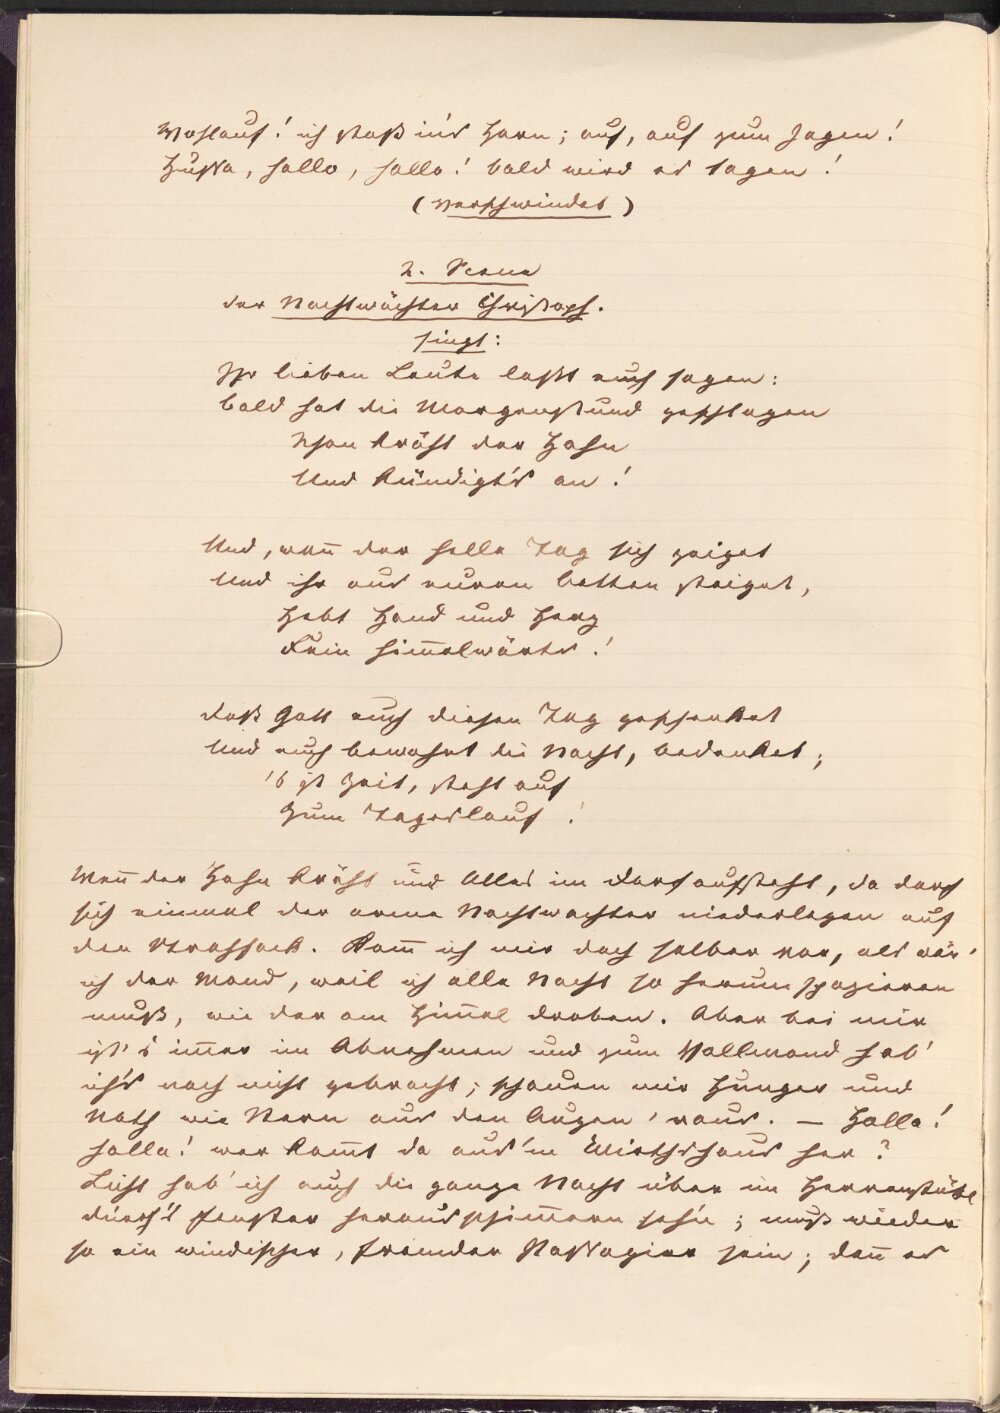 Wohlauf! ich stoß in's Horn; auf, auf zum Jagen!
Hussa, hallo, hallo! bald wird es tagen!
(verschwindet)
2. Scene
der Nachtwächter Christoph.
singt:
Ihr lieben Leute laßt euch sagen:
bald hat die Morgenstund geschlagen
Schon kräht der Hahn
Und kündigt's an!
Und, wen̄ der helle Tag sich zeiget
Und ihr aus euren Betten steiget,
Hebt Hand und Herz
Fein him̄elwärts!
daß Gott euch diesen Tag geschenket
Und euch bewahrt die Nacht, bedenket;
's ist Zeit, steht auf
Zum Tageslauf!
Wen̄ der Hahn kräht und Alles im Dorf aufsteht, da darf
sich einmal der arme Nachtwachter niederlegen auf
den Strohsack. Kom̄ ich mir doch selber vor, als wär'
ich der Mond, weil ich alle Nacht so herum spazieren
muß, wie der am Him̄el droben. Aber bei mir
ist's im̄er im Abnehmen und zum Vollmond hab'
ich's noch nicht gebracht; schauen mir Hunger und
Noth wie Stern aus den Augen 'raus. — Holla!
holla! wer kom̄t da aus'm Wirthshaus her?
Licht hab' ich auch die ganze Nacht über im Herrenstübl
durch's Fenster heraus schim̄ern seh'n; muß wieder
so ein windischer, fremder Passagier sein; den̄ es